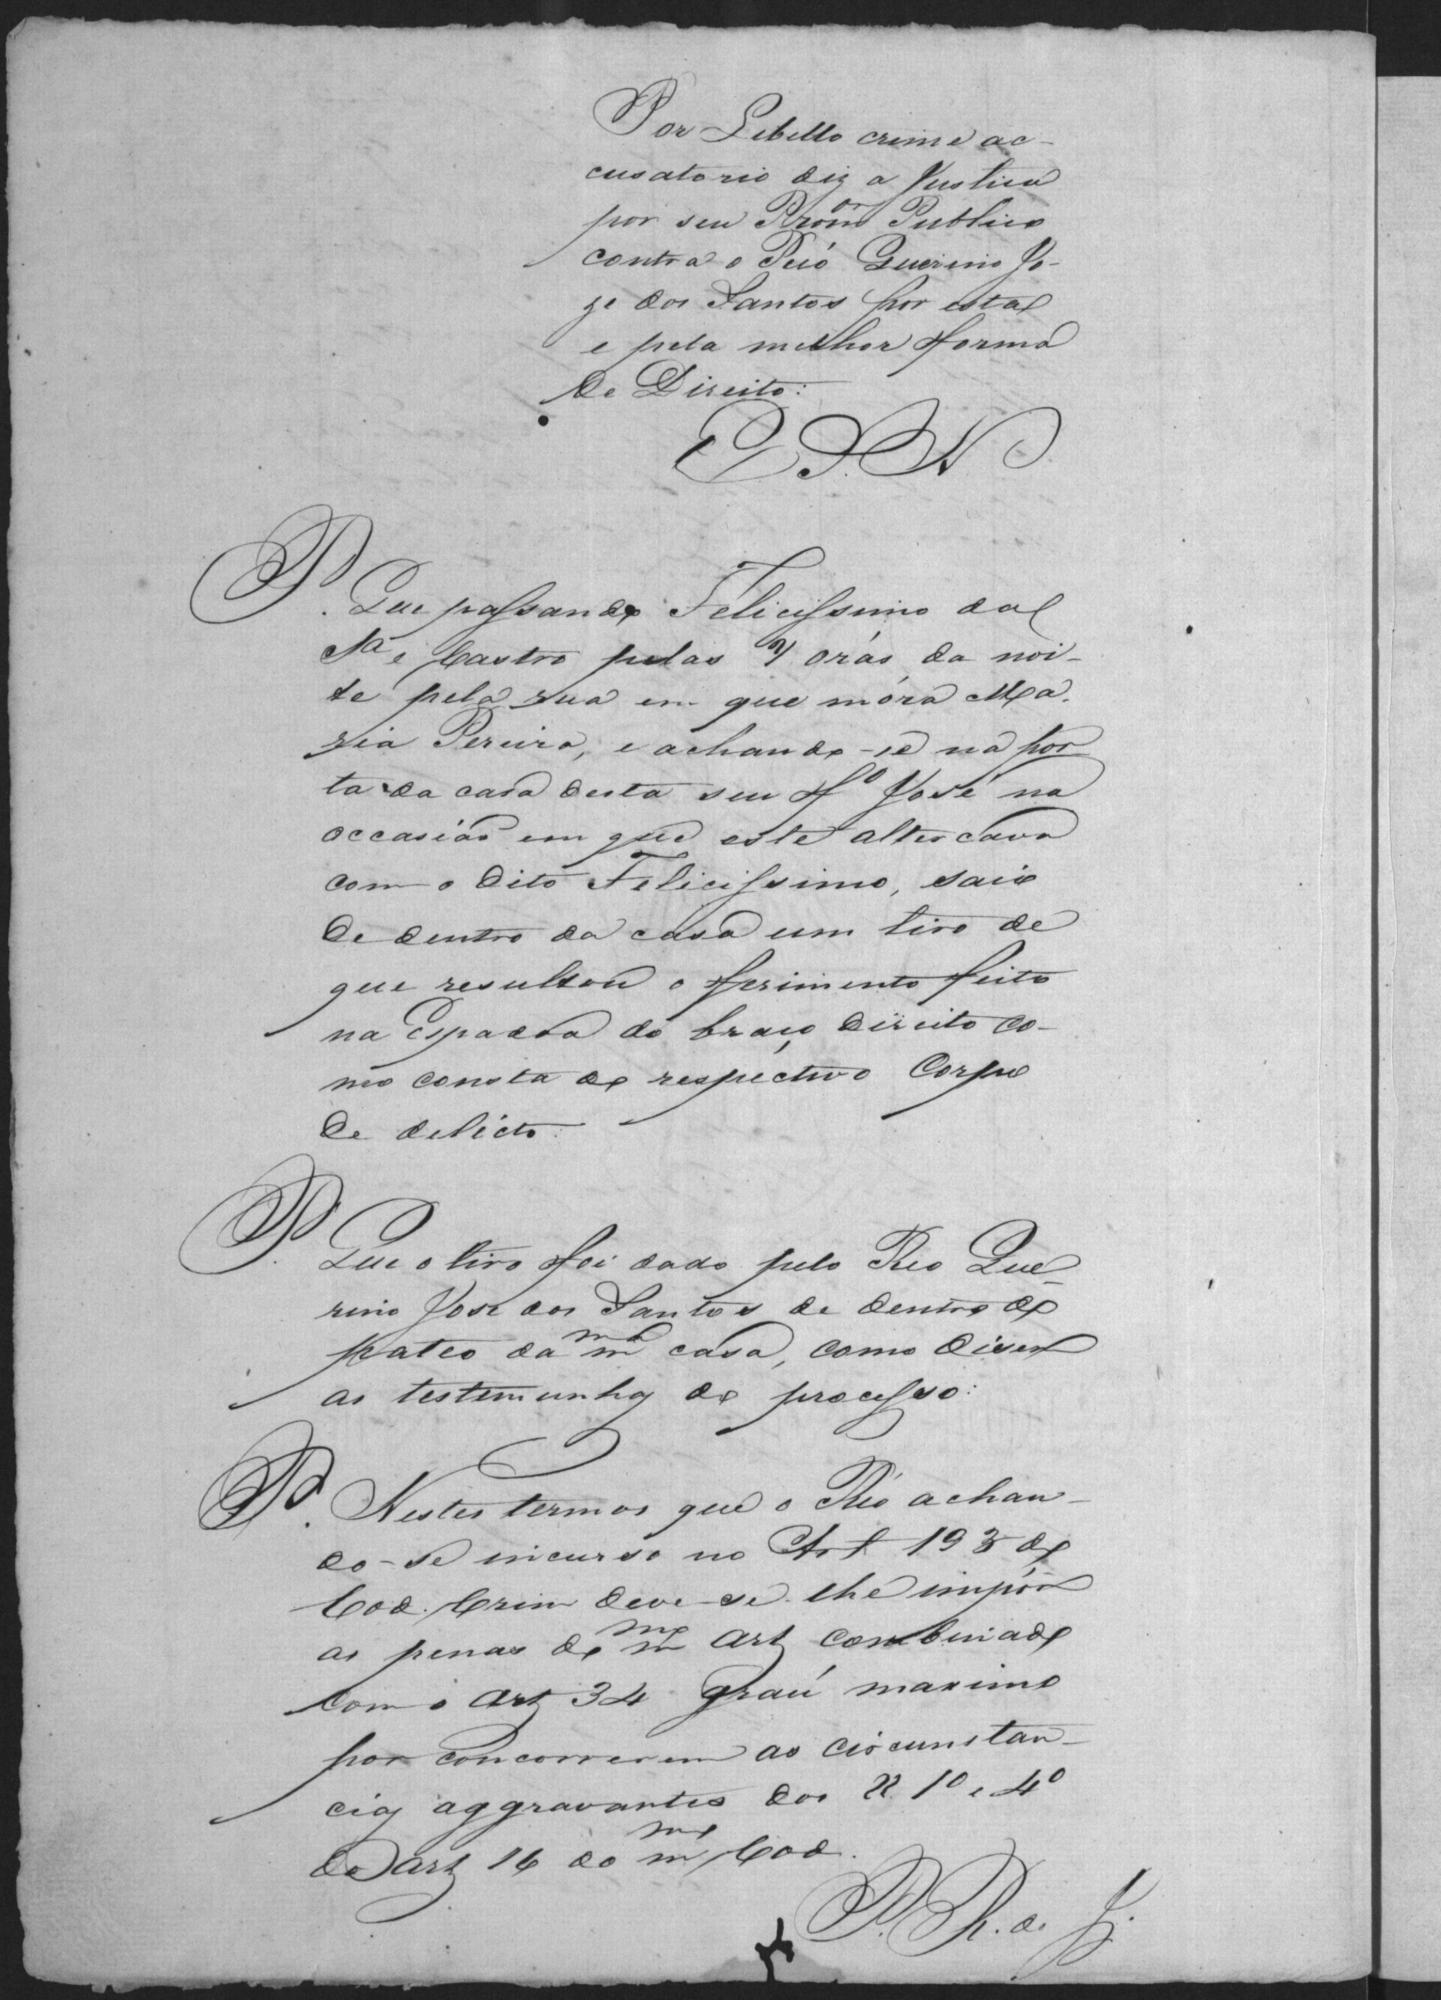 Por Libello crime ac-
cusatorio diz a Justica
por seu Prom.or Publico
contra o Reó Querino Jo-
ze dos Santos por esta
e pela melhor forma
de Direito:
E. S. N.
P. Que passando Felicissimo da
S.ª e Castro pelas 7 orás da noi-
te pela rua em que móra Ma-
ria Pereira, e achando-se na por-
ta da casa desta seu f.º José na
occasião em que este altercava
com o dito Felicissimo, saio
de dentro da casa um tiro de
que resultou o ferimento feito
na Espadoa do braço direito co-
mo consta do respectivo Corpo
de delicto:
P. Que o tiro foi dado pelo Reo Que-
rino José dos Santos de dentro do
pateo da m.ma casa, como disem
as testemunhas do processo:
P. Nestes termos que o Réo achan-
do-se incurso no Art 193 do
Cod. Crim deve-se lhe impôr
as penas do m.mo art combinado
com o art 34 gráu maximo
por concorrerem as circunstan-
cias aggravantes dos §§ 1º e 4º
do art 16 do m.mo Cod.
P. R. de J.